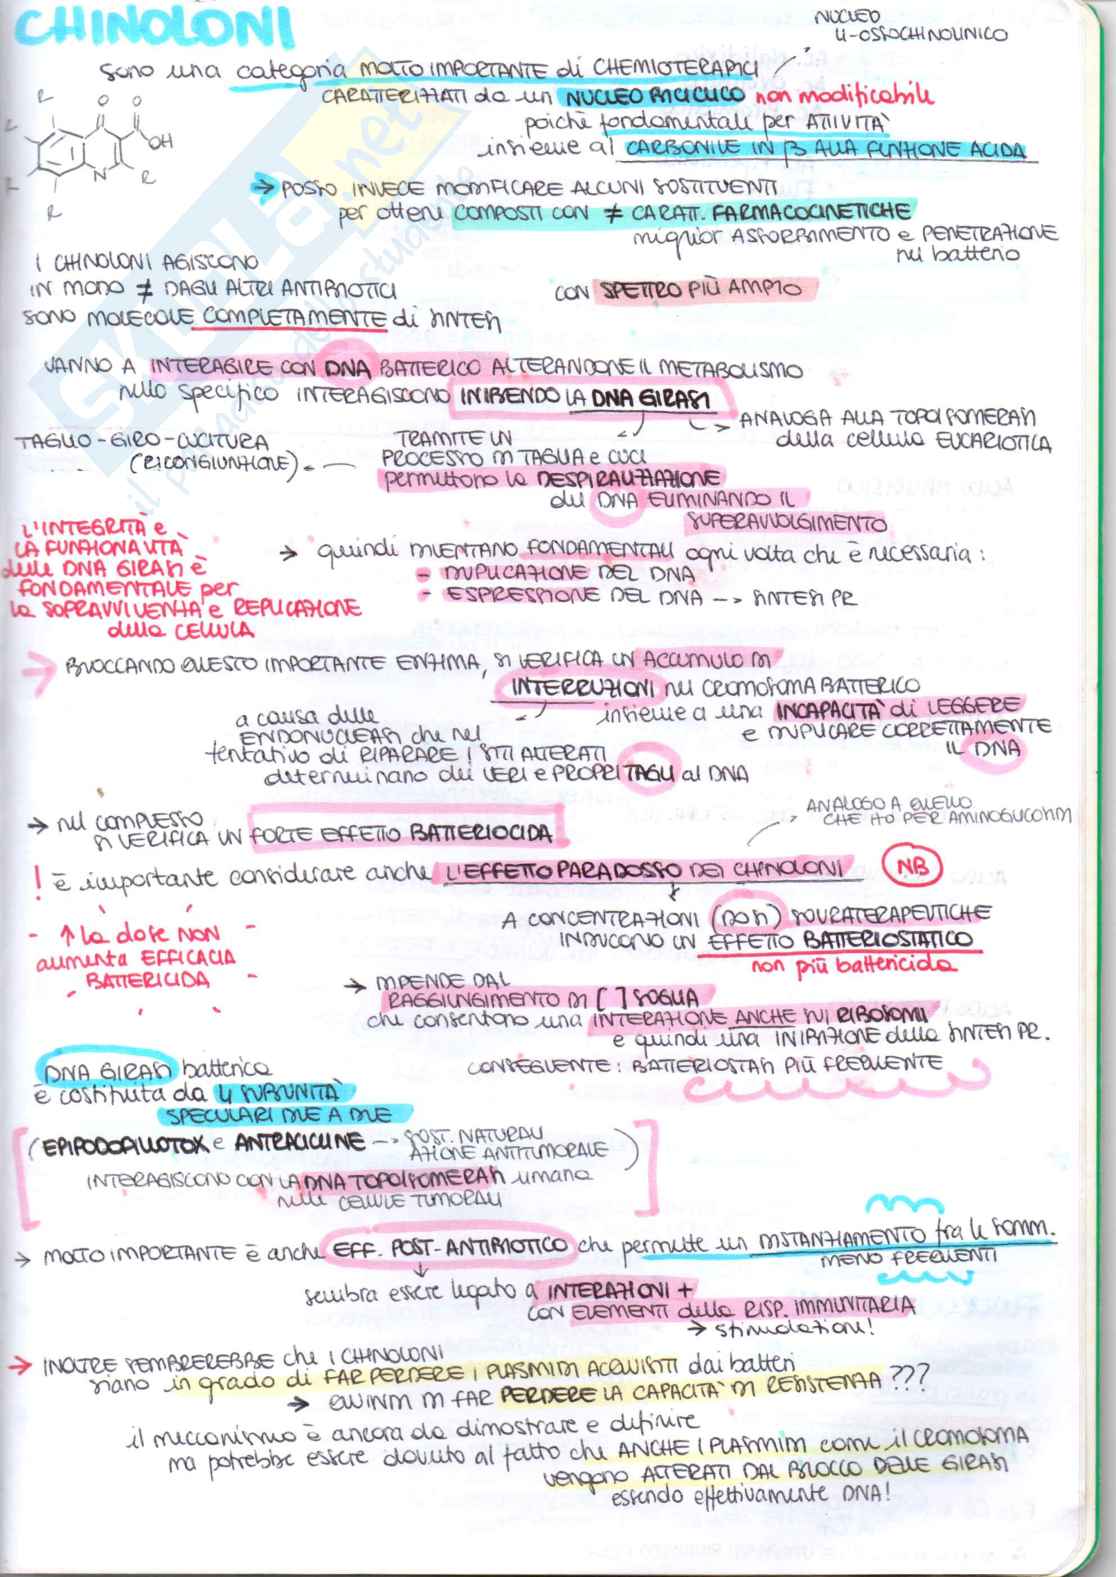 CHINOLONI
NUCLEO
4-OSSOCHINOLINICO
sono una categoria MOLTO IMPORTANTE di CHEMIOTERAPICI
CARATTERIZZATI da un NUCLEO BICICLICO non modificabile
poichè fondamentale per ATTIVITÀ
insieme al CARBONILE IN β ALLA FUNZIONE ACIDA
R O O
R OH
R N R
R
→ POSSO INVECE MODIFICARE ALCUNI SOSTITUENTI
per ottenere COMPOSTI CON ≠ CARATT. FARMACOCINETICHE
miglior ASSORBIMENTO e PENETRAZIONE
nel batterio
CON SPETTRO PIÙ AMPIO
I CHINOLONI AGISCONO
IN MODO ≠ DAGLI ALTRI ANTIBIOTICI
SONO MOLECOLE COMPLETAMENTE di SINTESI
VANNO A INTERAGIRE CON DNA BATTERICO ALTERANDONE IL METABOLISMO
nello specifico INTERAGISCONO INIBENDO LA DNA GIRASI
ANALOGA ALLA TOPOISOMERASI
della cellula EUCARIOTICA
TAGLIO-GIRO-CUCITURA
(RICONGIUNZIONE)
TRAMITE UN
PROCESSO DI TAGLIA e CUCI
permettono la DESPIRALIZZAZIONE
del DNA ELIMINANDO IL
SUPERAVVOLGIMENTO
L'INTEGRITÀ e
LA FUNZIONALITÀ
delle DNA GIRASI È
FONDAMENTALE per
la SOPRAVVIVENZA e REPLICAZIONE
della CELLULA
→ quindi DIVENTANO FONDAMENTALI ogni volta che è necessaria:
- DUPLICAZIONE DEL DNA
- ESPRESSIONE DEL DNA --> SINTESI PR
→ BLOCCANDO QUESTO IMPORTANTE ENZIMA, SI VERIFICA UN ACCUMULO DI
INTERRUZIONI nel CROMOSOMA BATTERICO
insieme a una INCAPACITÀ di LEGGERE
e DUPLICARE CORRETTAMENTE
IL DNA
a causa delle
ENDONUCLEASI che nel
tentativo di RIPARARE I SITI ALTERATI
determinano dei VERI e PROPRI TAGLI al DNA
→ nel COMPLESSO
SI VERIFICA UN FORTE EFFETTO BATTERIOCIDA
ANALOGO A QUELLO
CHE HO PER AMINOGLICOSIDI
! è importante considerare anche L'EFFETTO PARADOSSO DEI CHINOLONI NB
A CONCENTRAZIONI (DOSI) SOVRATERAPEUTICHE
INDUCONO UN EFFETTO BATTERIOSTATICO
non più battericida
- ↑ la dose NON -
aumenta EFFICACIA
BATTERICIDA
→ DIPENDE DAL
RAGGIUNGIMENTO DI [ ] SOGLIA
che consentono una INTERAZIONE ANCHE SUI RIBOSOMI
e quindi una INIBIZIONE della SINTESI PR.
CONSEGUENTE: BATTERIOSTASI PIÙ FREQUENTE
DNA GIRASI batterica
è costituita da 4 SUBUNITÀ
SPECULARI DUE A DUE
(EPIPODOFILLOTOX e ANTRACICLINE --> SOST. NATURALI
AZIONE ANTITUMORALE)
INTERAGISCONO CON LA DNA TOPOISOMERASI umana
nelle CELLULE TUMORALI
→ MOLTO IMPORTANTE è anche EFF. POST-ANTIBIOTICO che permette un DISTANZIAMENTO fra le SOMM.
MENO FREQUENTI
sembra essere legato a INTERAZIONI +
CON ELEMENTI della RISP. IMMUNITARIA
→ stimolazione!
→ INOLTRE SEMBREREBBE che I CHINOLONI
siano in grado di FAR PERDERE I PLASMIDI ACQUISITI dai batteri
→ QUINDI DI FAR PERDERE LA CAPACITÀ DI RESISTENZA ???
il meccanismo è ancora da dimostrare e definire
ma potrebbe essere dovuto al fatto che ANCHE I PLASMIDI come il CROMOSOMA
vengono ALTERATI DAL BLOCCO DELLE GIRASI
essendo effettivamente DNA!